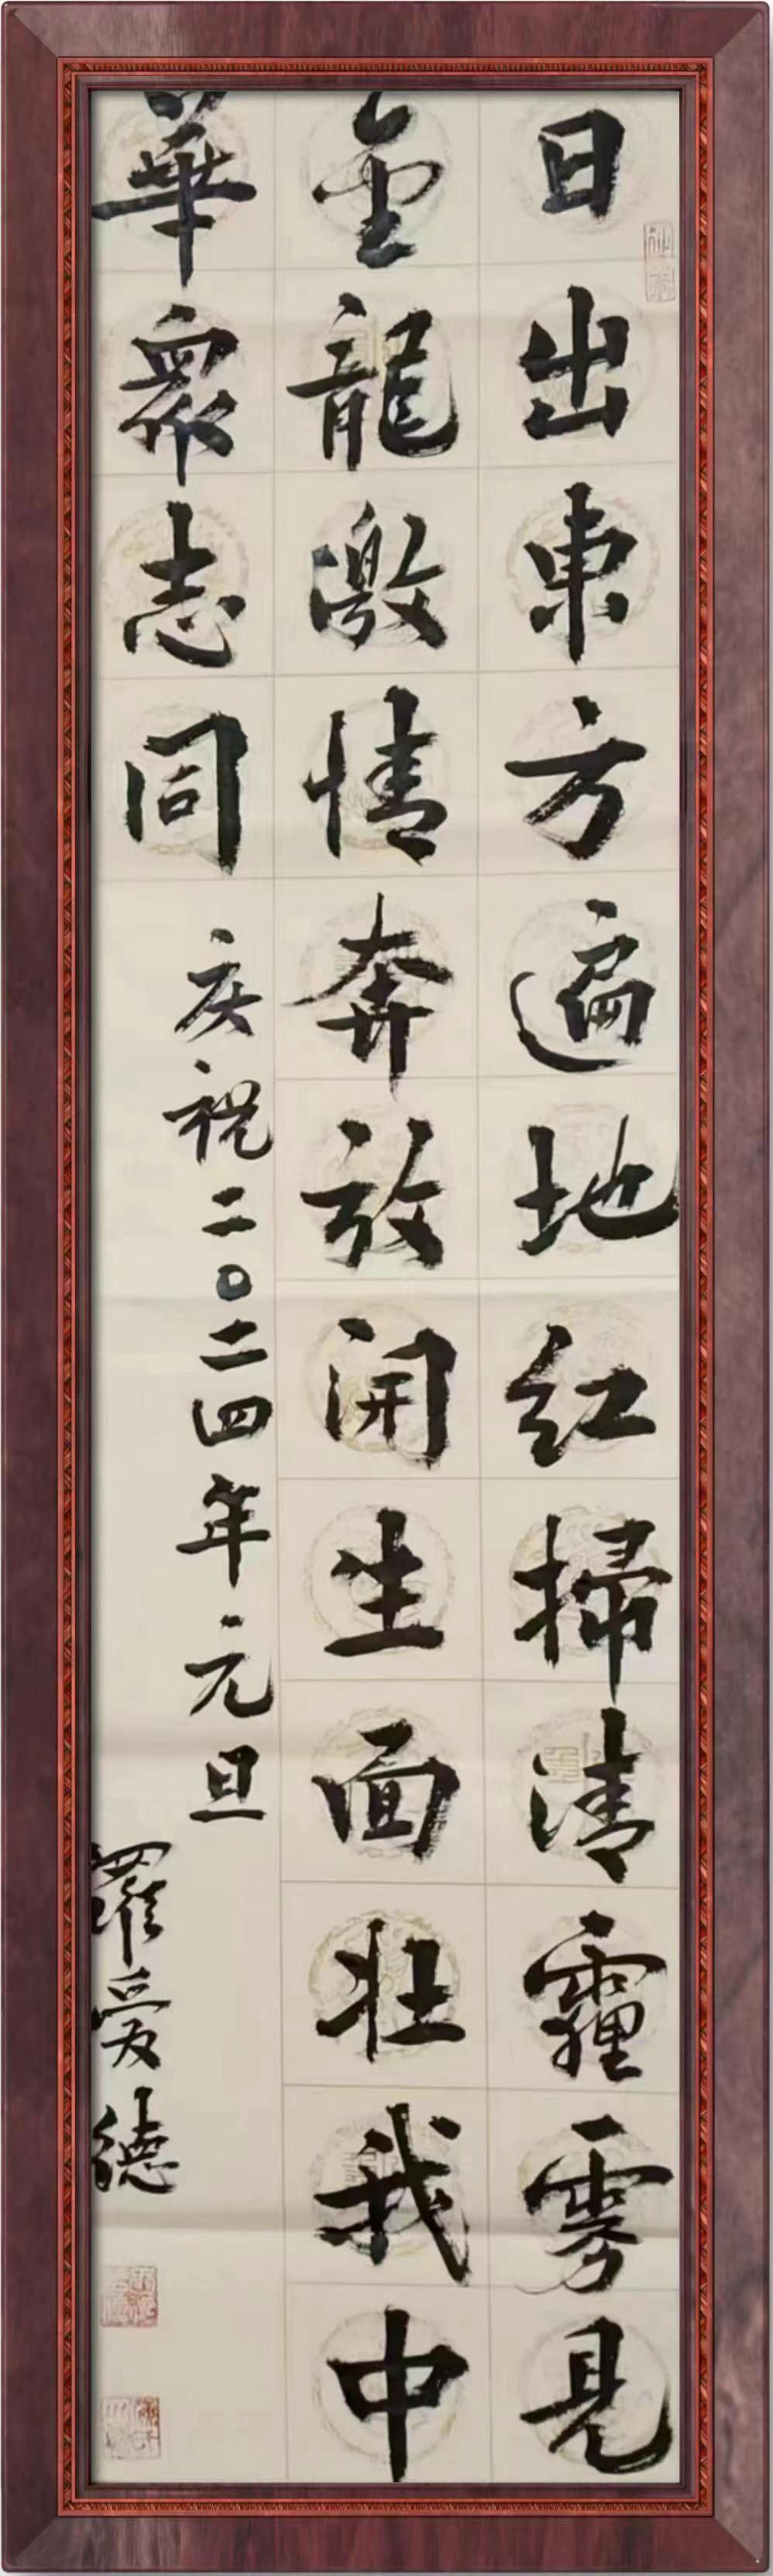 日出東方遍地红掃清霾雾見
金龍激情奔放開生面壮我中
華衆志同
庆祝二〇二四年元旦
羅爱德